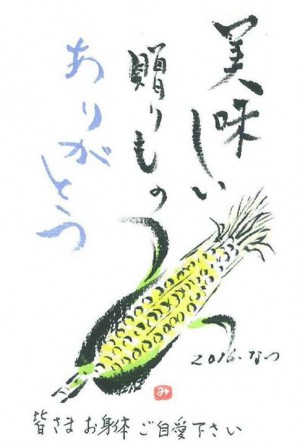 美味しい
贈りもの
ありがとう
2016.なつ
み
皆さまお身体ご自愛下さい